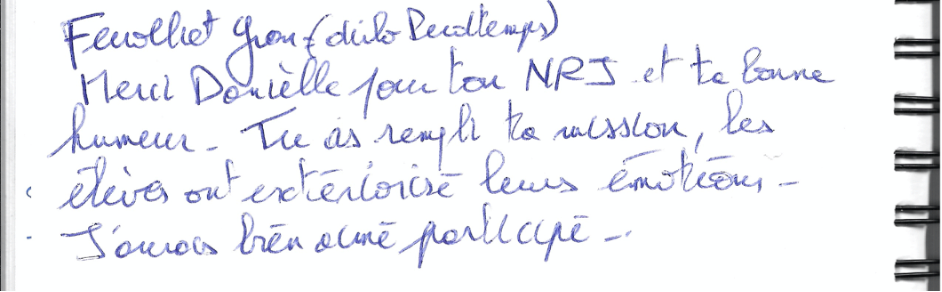 Merci Danièlle pour ton NRJ et ta bonne
humeur - Tu as rempli ta mission, les
élèves ont extériorisé leurs émotions -
J'aurais bien aimé participé -